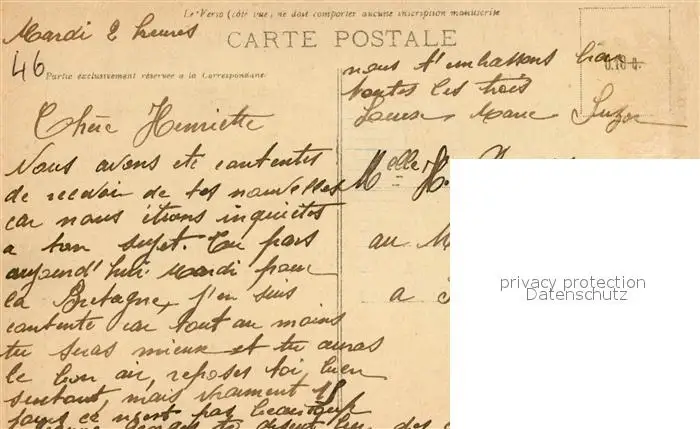 Le Verso (côté vue) ne doit comporter aucune inscription manuscrite
Mardi 2 heures
CARTE POSTALE
46
Partie exclusivement réservée à la Correspondance
nous t'embrassons bien
toutes les trois
Marie
Chère Henriette
Nous avons été contentes
de recevoir de tes nouvelles
car nous étions inquiètes
a ton sujet. Tu pars
aujourd'hui Mardi pour
la Bretagne, j'en suis
contente car tout au moins
tu seras mieux et tu auras
le bon air, reposes toi, bien
surtout, mais vraiment 15
jours ce n'est pas beaucoup
Melle H.
au M
a
privacy protection
Datenschutz